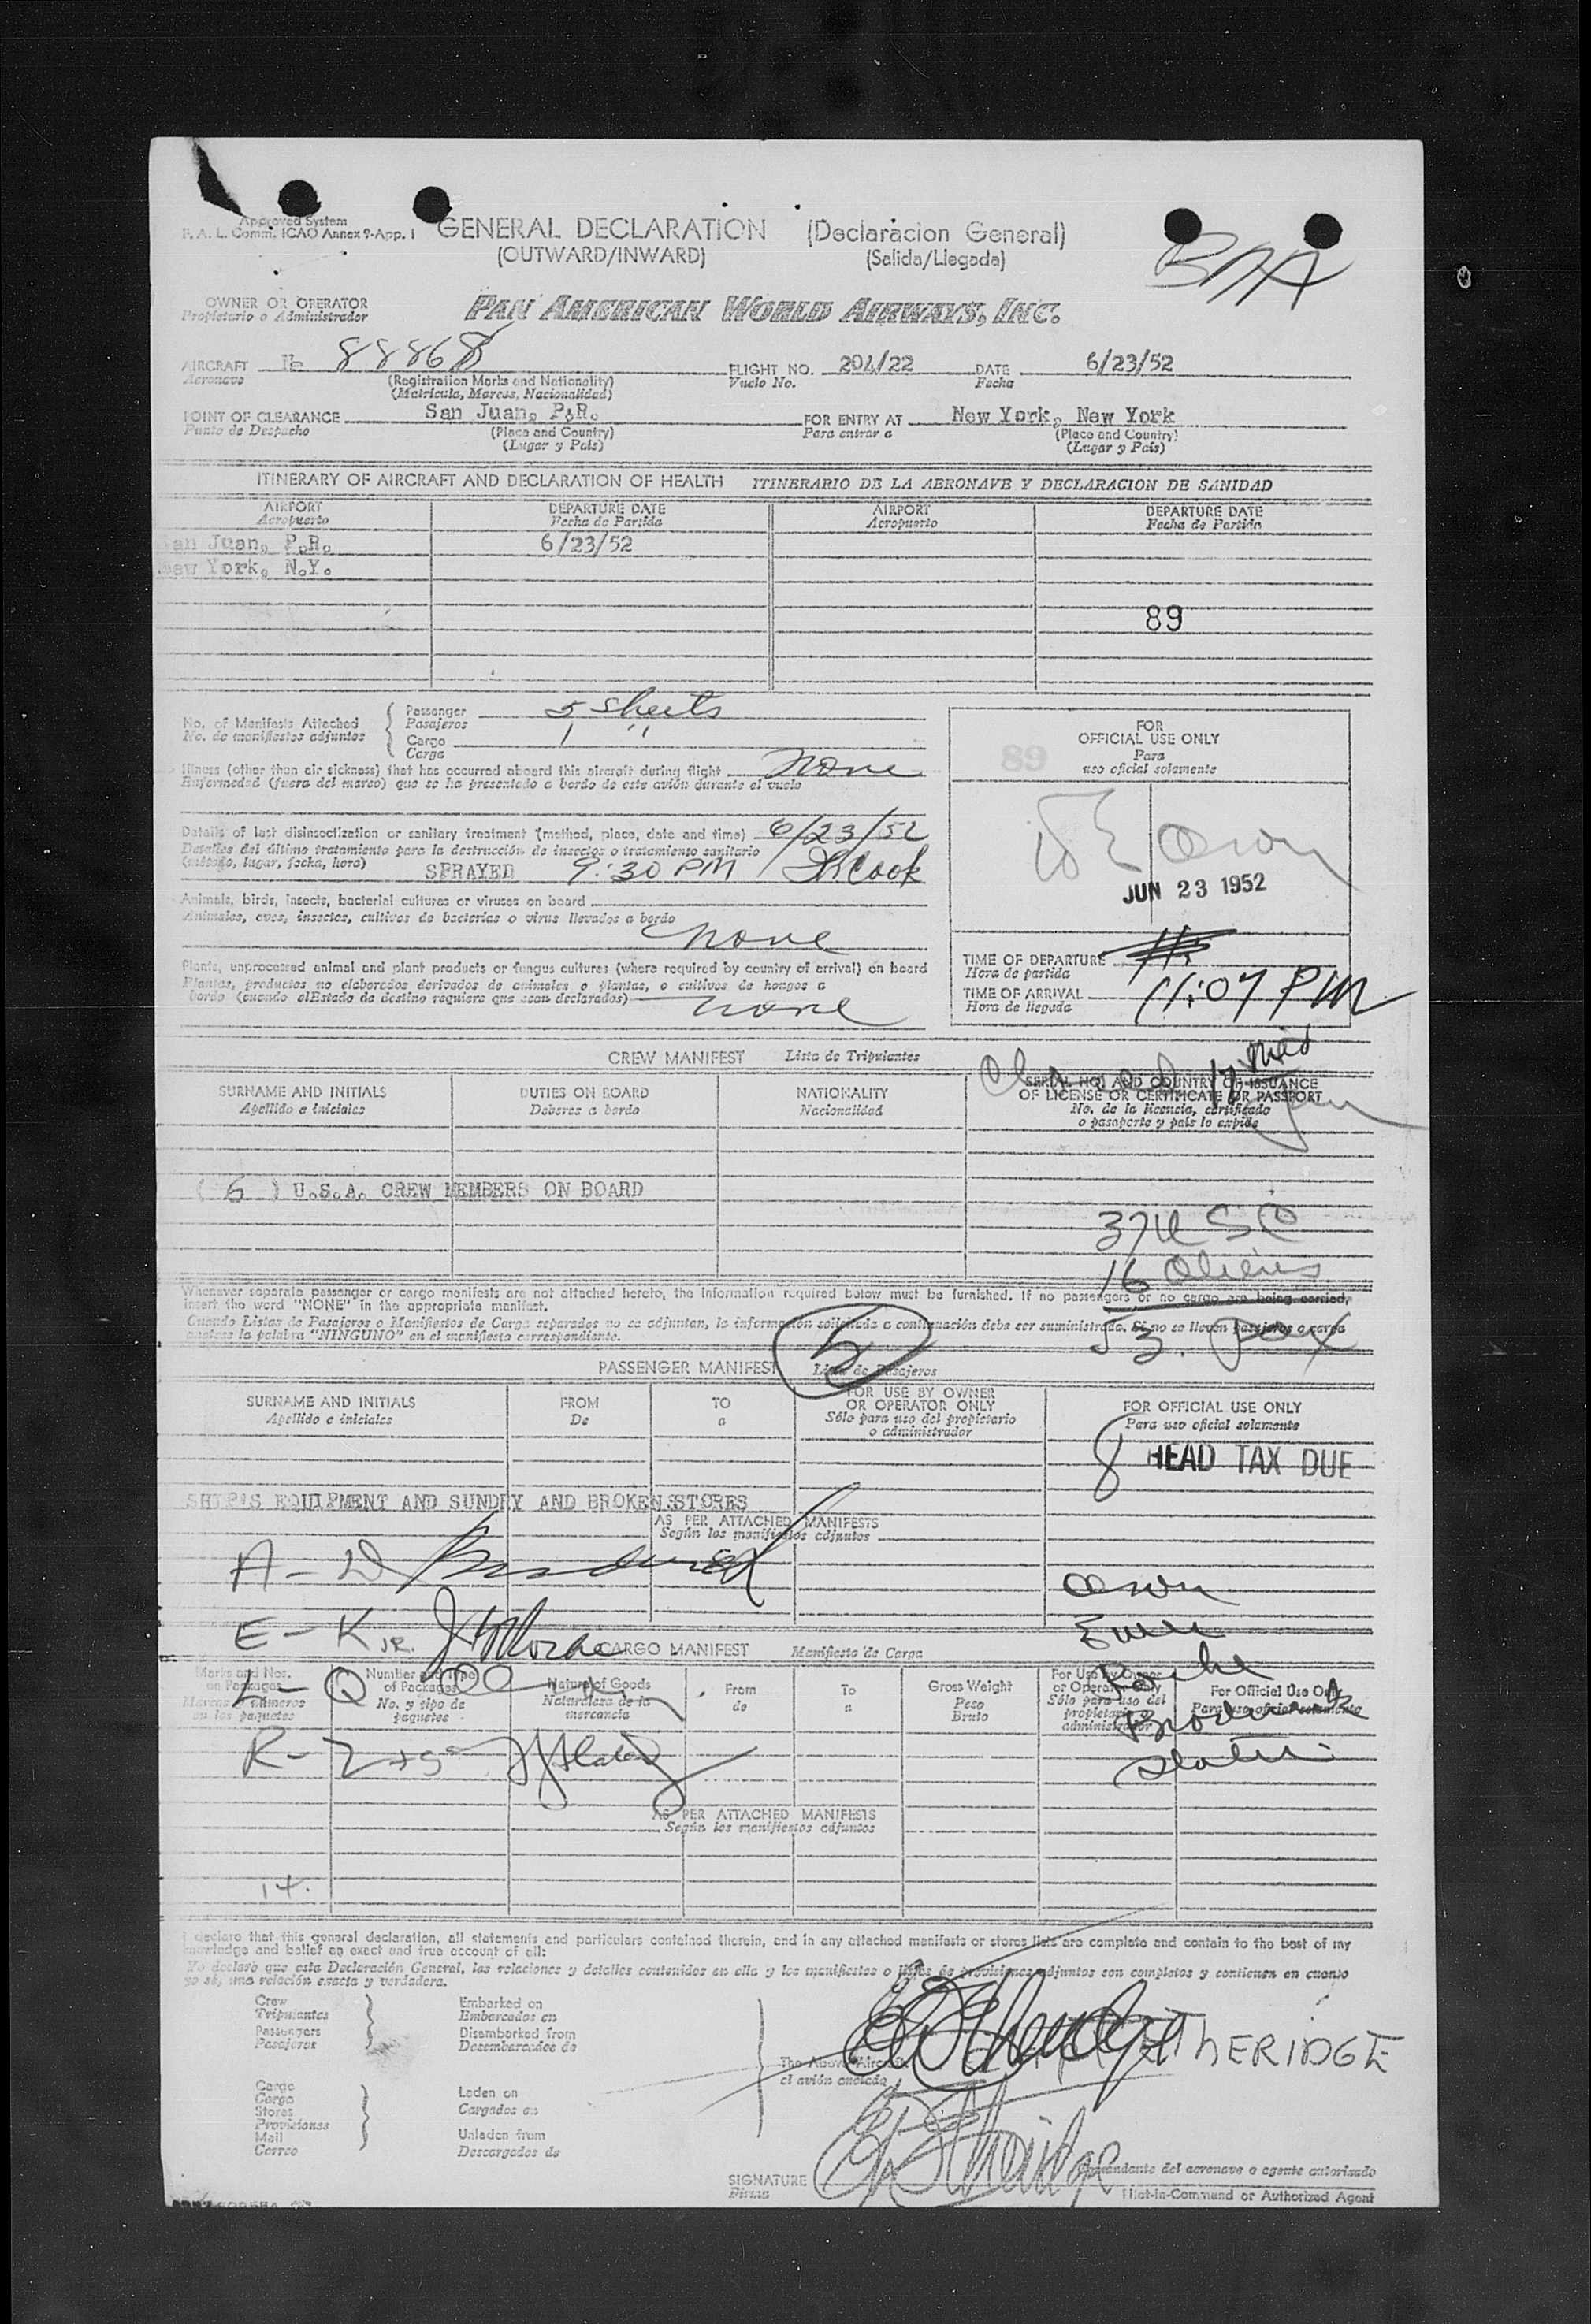 Approved System
F. A. L. Comm. ICAO Annex 9-App. 1
GENERAL DECLARATION (Declaracion General)
(OUTWARD/INWARD) (Salida/Llegada)
OWNER OR OPERATOR
Propietario o Administrador
PAN AMERICAN WORLD AIRWAYS, INC.
AIRCRAFT N 88868 FLIGHT NO. 204/22 DATE 6/23/52
Aeronave (Registration Marks and Nationality) Vuelo No. Fecha
(Matrícula, Marcas, Nacionalidad)
POINT OF CLEARANCE San Juan, P.R. FOR ENTRY AT New York, New York
Punto de Despacho (Place and Country) Para entrar a (Place and Country)
(Lugar y País) (Lugar y País)
ITINERARY OF AIRCRAFT AND DECLARATION OF HEALTH ITINERARIO DE LA AERONAVE Y DECLARACION DE SANIDAD
AIRPORT DEPARTURE DATE AIRPORT DEPARTURE DATE
Aeropuerto Fecha de Partida Aeropuerto Fecha de Partida
San Juan, P.R. 6/23/52
New York, N.Y.
89
No. of Manifests Attached
No. de manifiestos adjuntos
Passenger 5 Sheets
Pasajeros
Cargo 1 "
Carga
Illness (other than air sickness) that has occurred aboard this aircraft during flight none
Enfermedad (fuera del mareo) que se ha presentado a bordo de este avión durante el vuelo
Details of last disinsectization or sanitary treatment (method, place, date and time) 6/23/52
Detalles del último tratamiento para la destrucción de insectos o tratamiento sanitario
(método, lugar, fecha, hora) SPRAYED 9:30 PM Cook
Animals, birds, insects, bacterial cultures or viruses on board
Animales, aves, insectos, cultivos de bacterias o virus llevados a bordo
none
Plants, unprocessed animal and plant products or fungus cultures (where required by country of arrival) on board
Plantas, productos no elaborados derivados de animales o plantas, o cultivos de hongos a
bordo (cuando el Estado de destino requiere que sean declarados) none
FOR
OFFICIAL USE ONLY
Para
uso oficial solamente
89
JUN 23 1952
TIME OF DEPARTURE
Hora de partida
TIME OF ARRIVAL 11:07 PM
Hora de llegada
CREW MANIFEST Lista de Tripulantes
SURNAME AND INITIALS DUTIES ON BOARD NATIONALITY SERIAL NO. AND COUNTRY OF ISSUANCE
OF LICENSE OR CERTIFICATE OR PASSPORT
Apellido e iniciales Deberes a bordo Nacionalidad No. de la licencia, certificado
o pasaporte y país lo expide
( 6 ) U.S.A. CREW MEMBERS ON BOARD
37 U SC
16 Aliens
53. Pax
Whenever separate passenger or cargo manifests are not attached hereto, the information required below must be furnished. If no passengers or no cargo are being carried,
insert the word "NONE" in the appropriate manifest.
Cuando Listas de Pasajeros o Manifiestos de Carga separados no se adjuntan, la información solicitada a continuación debe ser suministrada. Si no se llevan pasajeros o carga
anótese la palabra "NINGUNO" en el manifiesto correspondiente.
5
PASSENGER MANIFEST Lista de Pasajeros
SURNAME AND INITIALS FROM TO FOR USE BY OWNER
OR OPERATOR ONLY FOR OFFICIAL USE ONLY
Apellido e iniciales De a Sólo para uso del propietario
o administrador Para uso oficial solamente
8 HEAD TAX DUE
SHIP'S EQUIPMENT AND SUNDRY AND BROKEN STORES
AS PER ATTACHED MANIFESTS
Según los manifiestos adjuntos
A - D
E - K JR.
CARGO MANIFEST Manifiesto de Carga
L - Q
Marks and Nos.
on Packages
Marcas y números
en los paquetes
Number and Type
of Packages
No. y tipo de
paquetes
Nature of Goods
Naturaleza de la
mercancía
From
de
To
a
Gross Weight
Peso
Bruto
For Use by Owner
or Operator Only
Sólo para uso del
propietario o
administrador
For Official Use Only
Para uso oficial solamente
R - Z
AS PER ATTACHED MANIFESTS
Según los manifiestos adjuntos
14.
I declare that this general declaration, all statements and particulars contained therein, and in any attached manifests or stores lists are complete and contain to the best of my
knowledge and belief an exact and true account of all:
Yo declaro que esta Declaración General, las relaciones y detalles contenidos en ella y los manifiestos o listas de provisiones adjuntos son completos y contienen en cuanto
yo sé, una relación exacta y verdadera.
Crew
Tripulantes
Passengers
Pasajeros
Embarked on
Embarcados en
Disembarked from
Desembarcados de
Cargo
Carga
Stores
Provisiones
Mail
Correo
Laden on
Cargados en
Unladen from
Descargados de
The Above Aircraft
el avión anotado
ETHERIDGE
SIGNATURE
Firma
Comandante del aeronave o agente autorizado
Pilot-in-Command or Authorized Agent